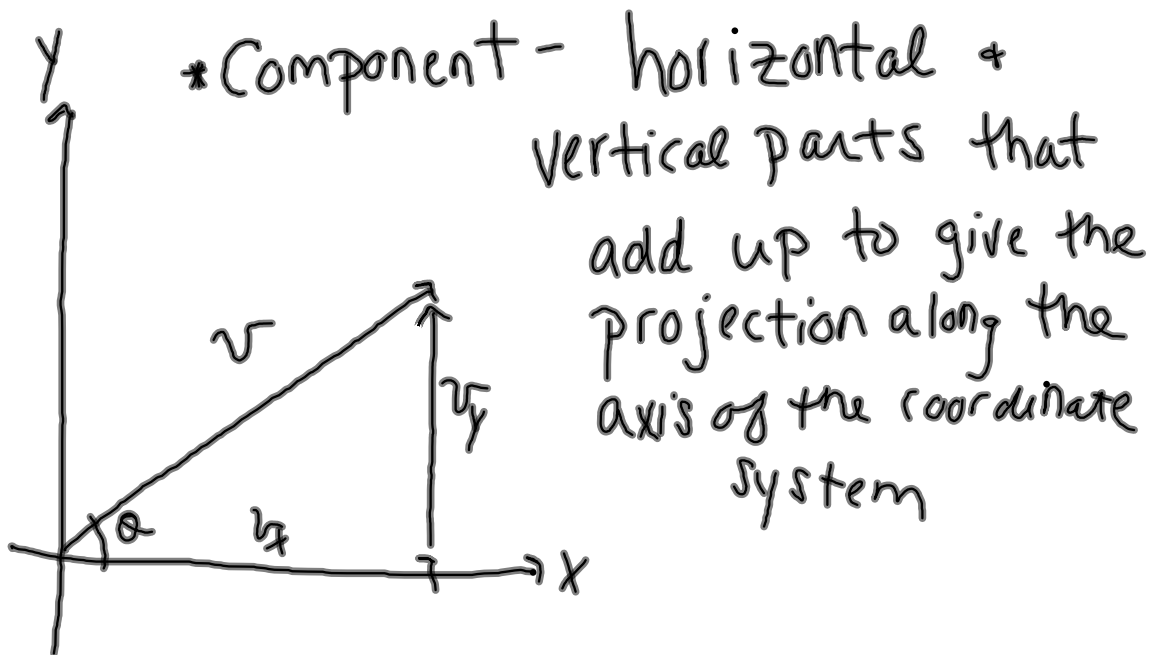 Y
*Component - horizontal +
vertical parts that
add up to give the
projection along the
axis of the coordinate
system
v
v_y
θ
v_x
X